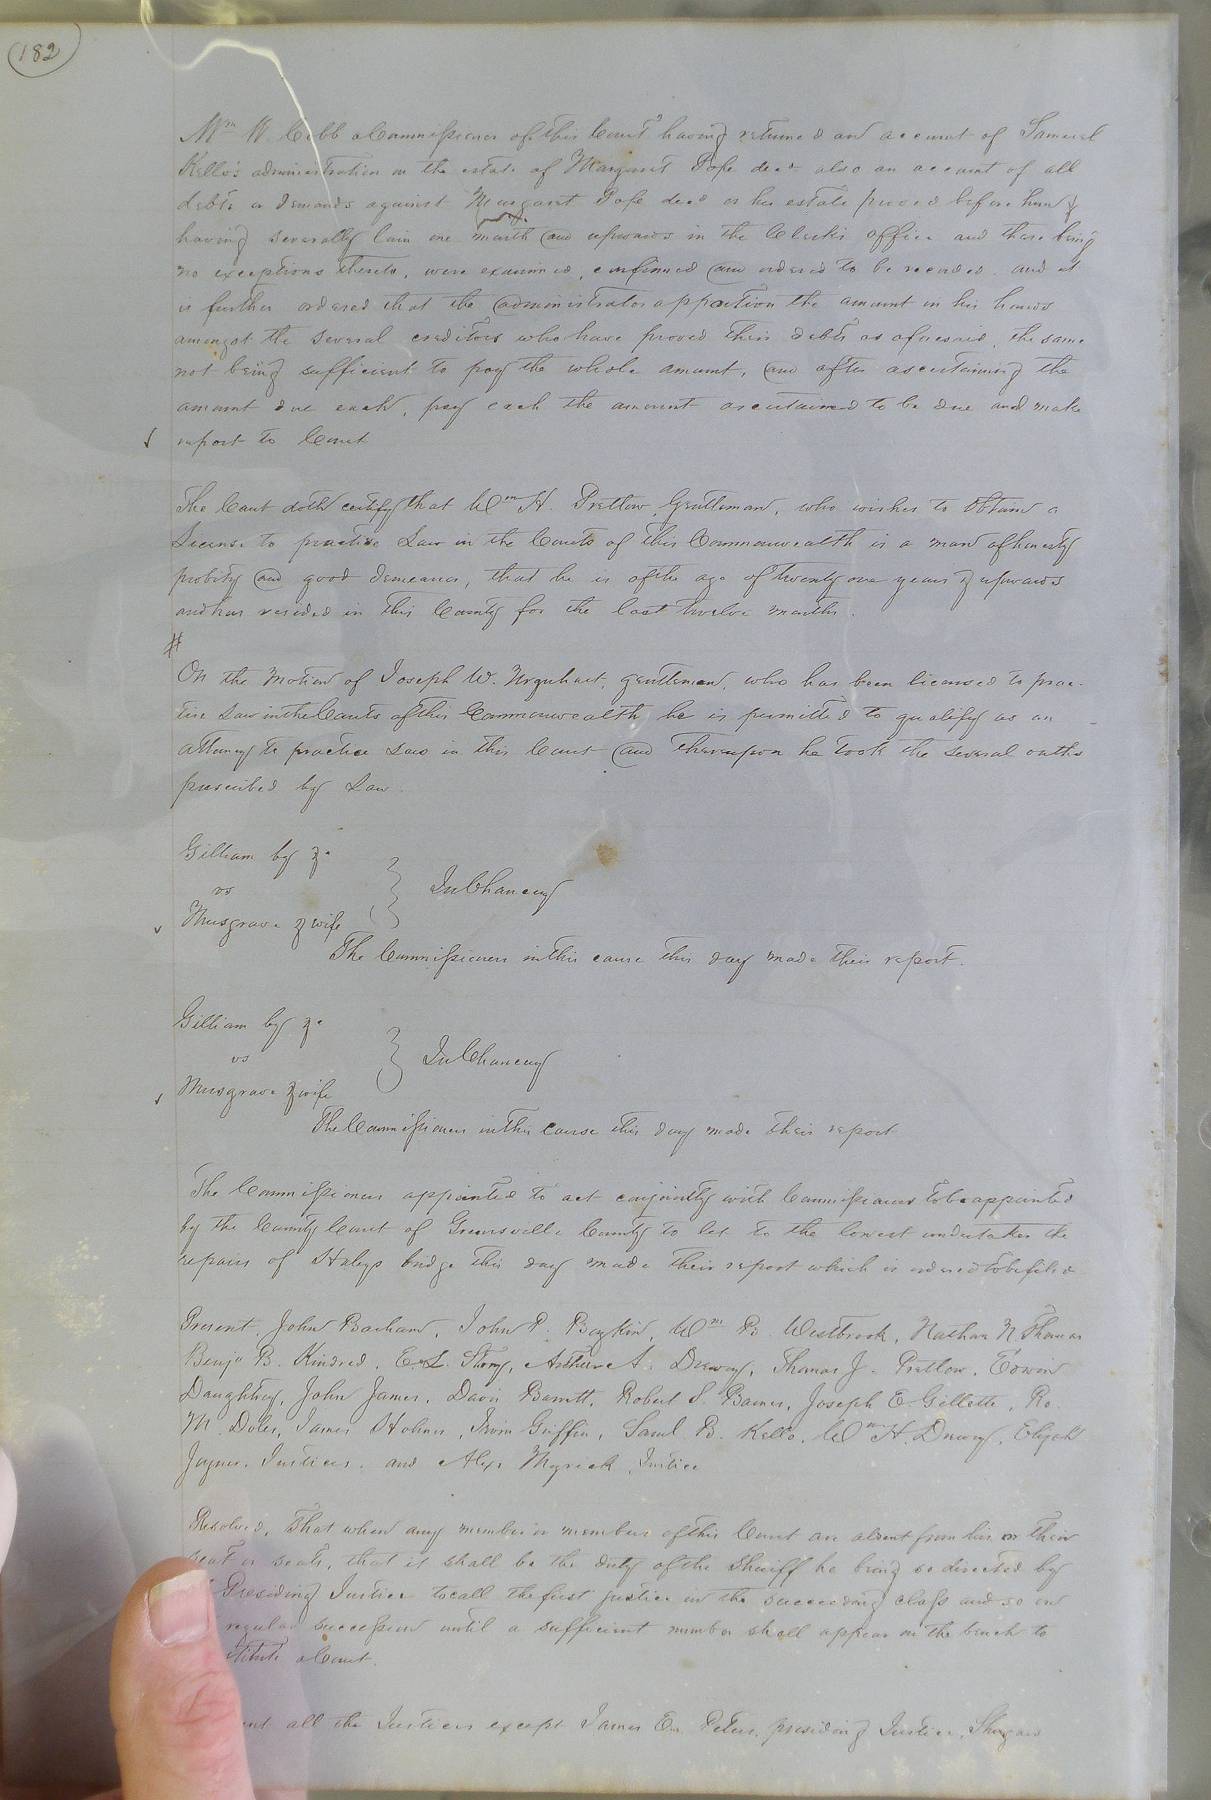 182
Wm W. Cobb a Commissioner of this Court having returned and account of Samuel
Kello's administration on the estate of Margaret Pope decd also an account of all
debts or demands against Margaret Pope decd or his estate proved before him &
having severally lain one month and upwards in the Clerks office and there being
no exceptions thereto, were examined, confirmed and ordered to be recorded. and it
is further ordered that the administrator apportion the amount in his hands
amongst the several creditors who have proved their debts as aforesaid, the same
not being sufficient to pay the whole amount, and after ascertaining the
amount due each, pay each the amount ascertained to be due and make
report to Court
The Court doth certify that Wm H. Pretlow, Gentleman, who wishes to obtain a
License to practise Law in the Courts of this Commonwealth is a man of honesty
probity and good demeanor, that he is of the age of twenty one years & upwards
and has resided in this County for the last twelve months.
#
On the motion of Joseph W. Urquhart, gentleman, who has been licensed to prac-
tise Law in the Courts of this Commonwealth he is permitted to qualify as an
attorney to practice Law in this Court and thereupon he took the several oaths
prescribed by Law.
Gilliam by &c
vs
Musgrave & wife
} In Chancery
The Commissioners in this cause this day made their report.
Gilliam by &c
vs
Musgrave & wife
} In Chancery
The Commissioners in this cause this day made their report
The Commissioners appointed to act conjointly with Commissioners to be appointed
by the County Court of Greensville County to let to the lowest undertaker the
repairs of Haleys bridge this day made their report which is ordered to be filed
Present, John Barham, John P. Boykin, Wm B. Westbrook, Nathan N Thomas
Benja B. Kindred, Arthur A. Drewry, Thomas J. Pretlow, Edwin
Daughtry, John James, Davis Barrett, Robert S. Barnes, Joseph E Gillette, Ro.
M. Doles, James Holmes, Irvin Griffin, Saml B. Kello, Wm H. Drewry, Elijah
Joyner, Justices. and Alex Myrick, Justice
Resolved, That when any member or members of this Court are absent from his or their
seat or seats, that it shall be the duty of the Sheriff he being so directed by
Presiding Justice to call the first justice in the succeeding class and so on
regular succession until a sufficient number shall appear on the bench to
stitute a Court.
ent all the Justices except James Peters, presiding Justice,